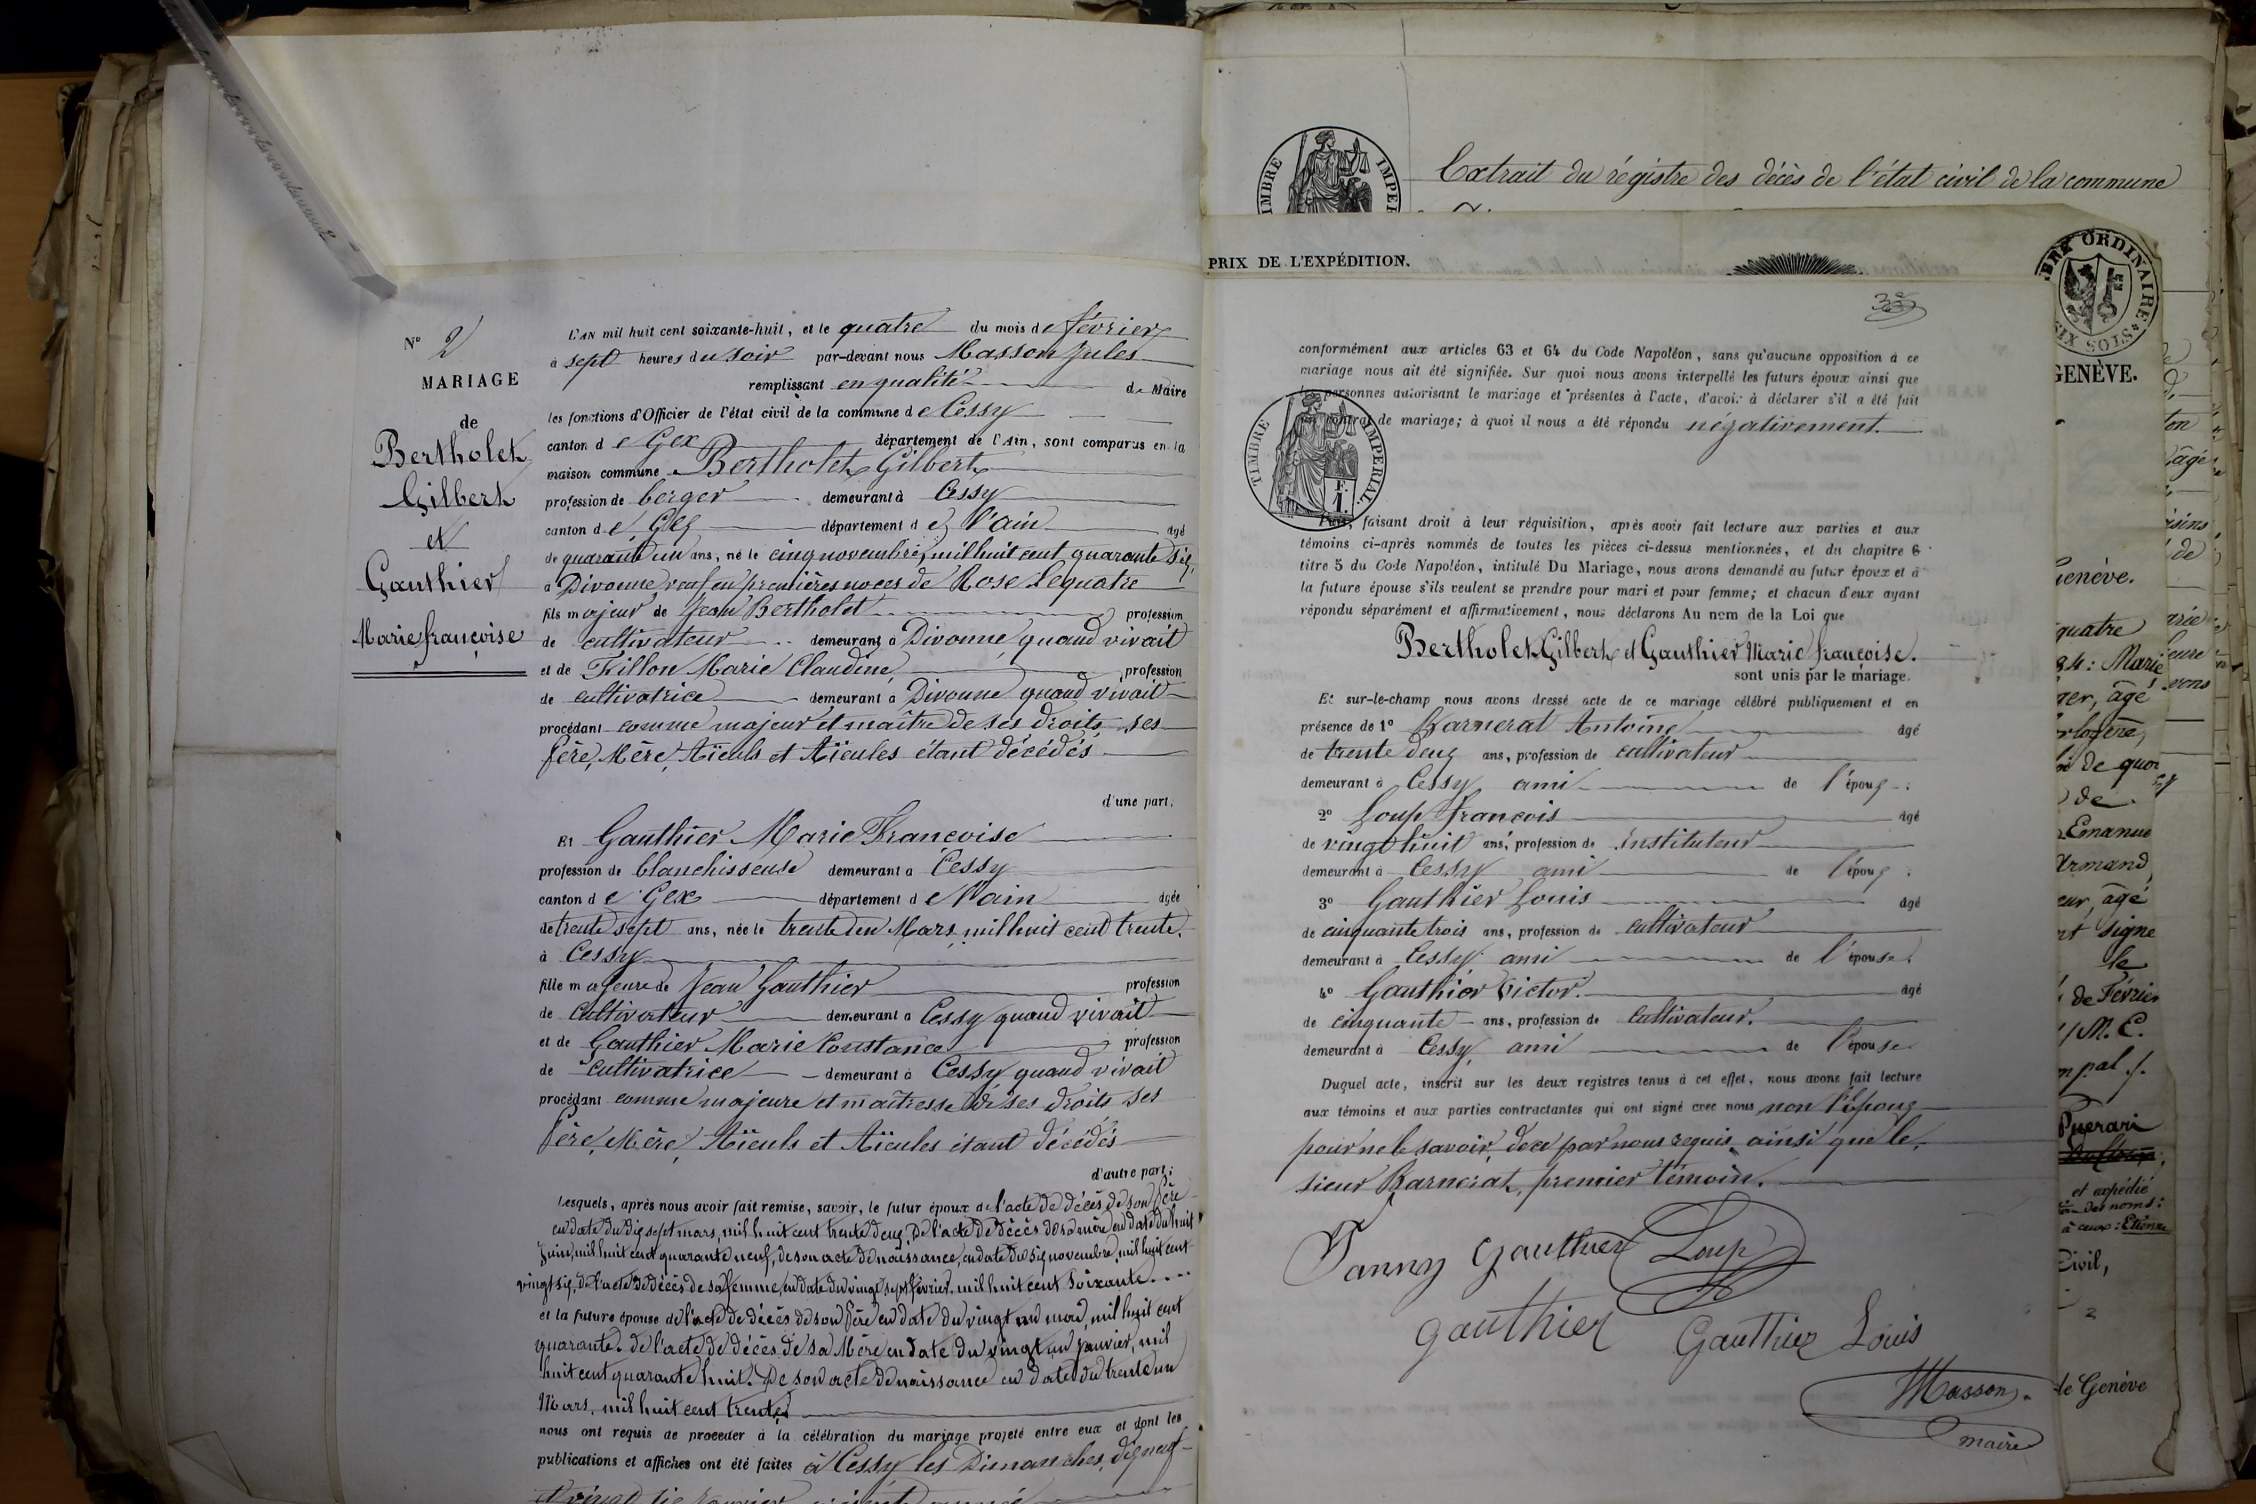 N° 2
MARIAGE
de
Bertholet
Gilbert
et
Gauthier
Marie françoise
L'AN mil huit cent soixante-huit, et le quatre du mois de février
à sept heures du soir par-devant nous Masson Jules
remplissant en qualité de Maire
les fonctions d'Officier de l'état civil de la commune de Cessy
canton de Gex département de l'Ain, sont comparus en la
maison commune Bertholet Gilbert
profession de berger demeurant à Cessy
canton de Gex département de l'ain âgé
de quarante un ans, né le cinq novembre, mil huit cent quarante six,
à Divonne, veuf en premières noces de Rose Lequatre
fils majeur de Jean Bertholet profession
de cultivateur demeurant à Divonne quand vivait
et de Fillon Marie Claudine, profession
de cultivatrice demeurant à Divonne quand vivait
procédant comme majeur et maître de ses droits ses
Père, Mère, Aïeuls et Aïeules étant décédés
d'une part,
Et Gauthier Marie Francoise
profession de blanchisseuse demeurant à Cessy
canton de Gex département de l'ain âgée
de trente sept ans, née le trente un Mars, mil huit cent trente,
à Cessy
fille majeure de Jean Gauthier profession
de cultivateur demeurant à Cessy quand vivait
et de Gauthier Marie Constance profession
de cultivatrice demeurant à Cessy quand vivait
procédant comme majeure et maîtresse de ses droits ses
Père, Mère, Aïeuls et Aïeules étant décédés
d'autre part;
Lesquels, après nous avoir fait remise, savoir, le futur époux de l'acte de décès de son père
en date du dix sept mars, mil huit cent trente deux, De l'acte de décès de sa mère en date du huit
Juin, mil huit cent quarante neuf, de son acte de naissance, en date du six novembre, mil huit cent
vingt six, de l'acte de décès de sa femme, en date du vingt sept février, mil huit cent soixante
et la future épouse de l'acte de décès de son Père en date du vingt un mai, mil huit cent
quarante. de l'acte de décès de sa Mère en date du vingt un janvier, mil
huit cent quarante huit. De son acte de naissance en date du trente un
Mars, mil huit cent trente
nous ont requis de procéder à la célébration du mariage projeté entre eux et dont les
publications et affiches ont été faites à Cessy les Dimanches, dix neuf
Extrait du régistre des décès de l'état civil de la commune
TIMBRE IMPER
PRIX DE L'EXPÉDITION.
conformément aux articles 63 et 64 du Code Napoléon, sans qu'aucune opposition à ce
mariage nous ait été signifiée. Sur quoi nous avons interpellé les futurs époux ainsi que
personnes autorisant le mariage et présentes à l'acte, d'avoir à déclarer s'il a été fait
contrat de mariage; à quoi il nous a été répondu négativement.
TIMBRE IMPERIAL
F.
1.
faisant droit à leur réquisition, après avoir fait lecture aux parties et aux
témoins ci-après nommés de toutes les pièces ci-dessus mentionnées, et du chapitre 6
titre 5 du Code Napoléon, intitulé Du Mariage, nous avons demandé au futur époux et à
la future épouse s'ils veulent se prendre pour mari et pour femme; et chacun d'eux ayant
répondu séparément et affirmativement, nous déclarons Au nom de la Loi que
Bertholet Gilbert et Gauthier Marie françoise.
sont unis par le mariage.
Et sur-le-champ nous avons dressé acte de ce mariage célébré publiquement et en
présence de 1° Barnerat Antoine âgé
de trente deux ans, profession de cultivateur
demeurant à Cessy ami de l'époux.
2° Loup françois âgé
de vingt huit ans, profession de instituteur
demeurant à Cessy ami de l'époux.
3° Gauthier Louis âgé
de cinquante trois ans, profession de cultivateur
demeurant à Cessy ami de l'épouse.
4° Gauthier Victor. âgé
de cinquante ans, profession de cultivateur.
demeurant à Cessy, ami de l'épouse
Duquel acte, inscrit sur les deux registres tenus à cet effet, nous avons fait lecture
aux témoins et aux parties contractantes qui ont signé avec nous non l'Epoux
pour ne le savoir, de ce par nous requis ainsi que le,
sieur Barnerat, premier témoin.
Fanny Gauthier Loup
Gauthier Gauthier Louis
Masson.
maire
ORDINAIRE
GENÈVE.
Genève.
quatre
Marie
âgé
de quoi
de
Emanue
Armand
eur, âgé
signe
le
de Février
M. C.
et expédié
des noms:
à ceux: Etienne
Civil,
2
de Genève